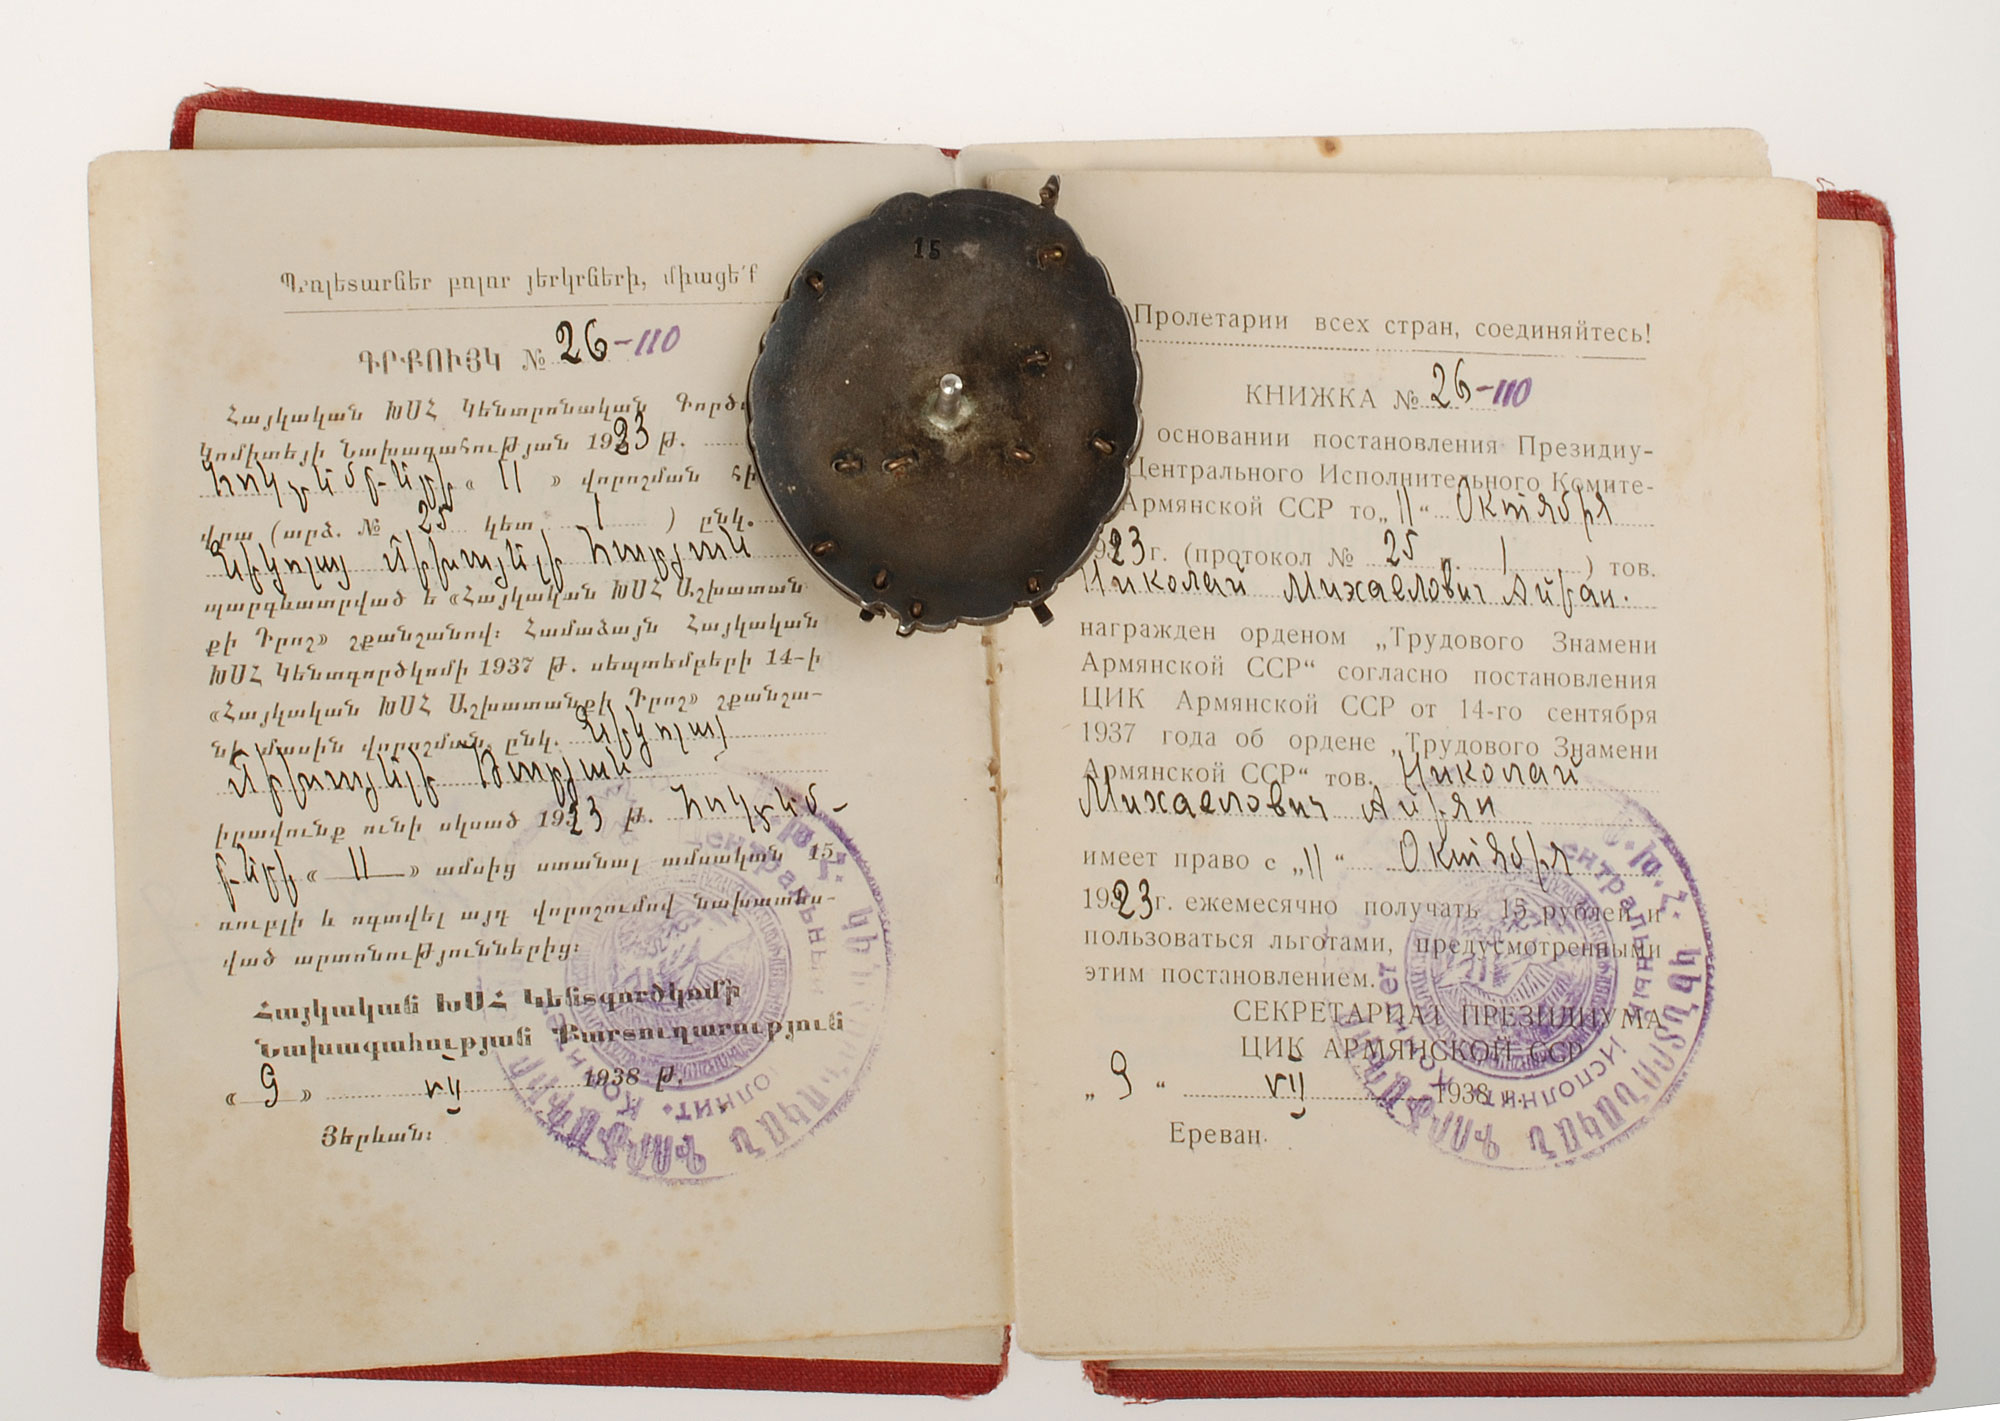 Պրոլետարներ բոլոր յերկրների, միացե՛ք
ԳՐՔՈՒՅԿ № 26-110
Հայկական ԽՍՀ Կենտրոնական Գործ
Կոմիտեյի Նախագահության 1923 թ.
Հոկտեմբերի « 11 » վորոշման հի
վրա (արձ. № 25 կետ 1 ) ընկ.
Նիկոլայ Միխայելի
պարգևատրված է «Հայկական ԽՍՀ Աշխատան
քի Դրոշ» շքանշանով: Համաձայն Հայկական
ԽՍՀ Կենտգործկոմի 1937 թ. սեպտեմբերի 14-ի
«Հայկական ԽՍՀ Աշխատանքի Դրոշ» շքանշա-
նի մասին վորոշման, ընկ. Նիկոլայ
Միխայելի
իրավունք ունի սկսած 1923 թ. Հոկտեմ-
բերի « 11 » ամսից ստանալ ամսական 15
ռուբլի և ոգտվել այդ վորոշումով նախատես-
ված արտոնություններից:
Հայկական ԽՍՀ Կենտգործկոմի
Նախագահության Քարտուղարություն
« 9 » VII 1938 թ.
Յերևան:
15
Пролетарии всех стран, соединяйтесь!
КНИЖКА № 26-110
основании постановления Президиу-
Центрального Исполнительного Комите-
Армянской ССР то „11“ Октября
1923 г. (протокол № 25 п. 1 ) тов.
Николай Михаелович Айкян.
награжден орденом „Трудового Знамени
Армянской ССР“ согласно постановления
ЦИК Армянской ССР от 14-го сентября
1937 года об ордене „Трудового Знамени
Армянской ССР“ тов. Николай
Михаелович Айкян
имеет право с „11“ Октября
1923 г. ежемесячно получать 15 рублей и
пользоваться льготами, предусмотренными
этим постановлением.
СЕКРЕТАРИАТ ПРЕЗИДИУМА
ЦИК АРМЯНСКОЙ ССР
„ 9 “ VII 1938 г.
Ереван.